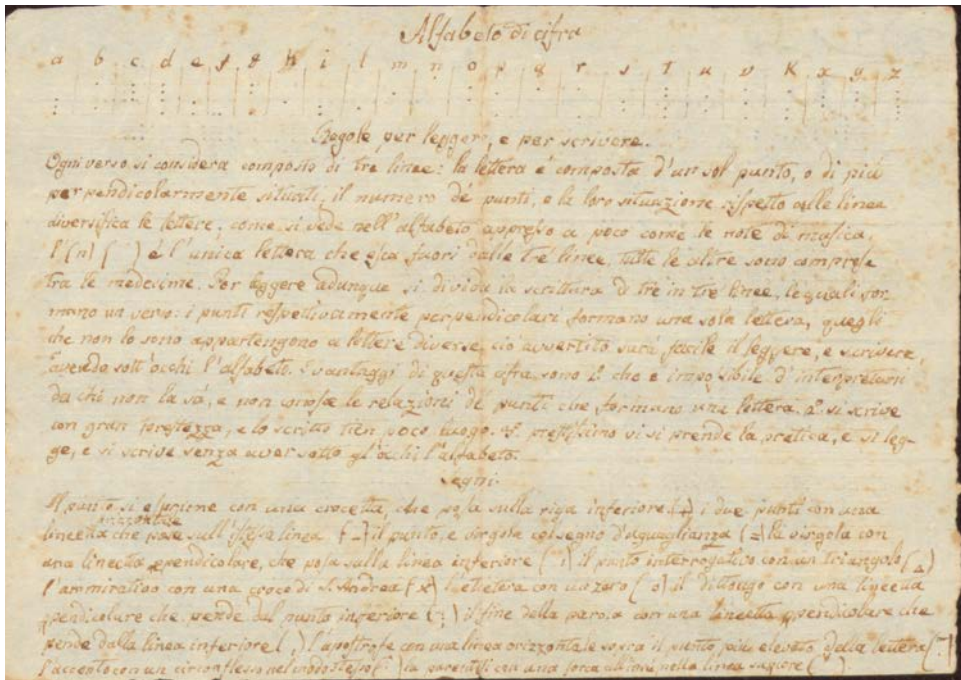 Alfabeto di cifra
a b c d e f g h i l m n o p q r s t u v K x y z
Regole per leggere, e per scrivere.
Ogni verso si considera composto di tre linee: la lettera é composta d'un sol punto, o di piú
perpendicolarmente situati, il numero dé punti, e la loro situazione rispetto alle linee
diversifica le lettere, come si vede nell'alfabeto appresso a poco come le note di musica.
l'(n) ( ) é l'unica lettera che esca fuori dalle tré linee, tutte le altre sono comprese
tra le medesime. Per leggere adunque si divida la scrittura di tre in tré linee, le quali for-
mano un verso: i punti respettivamente perpendicolari formano una sola lettera, quegli
che non lo sono appartengono a lettere diverse, ció avvertito sará facile il leggere, e scrivere,
avendo sott'occhi l'alfabeto. I vantaggi di questa cifra sono 1.º che é impossibile d'interpretarsi
da chi non la sá, e non conosce le relazioni dé punti che formano una lettera. 2.º si scrive
con gran prestezza, e lo scritto tien poco luogo. 3.º prestissimo vi si prende la pratica, e si leg-
ge, e si scrive senza aver sotto gl'occhi l'alfabeto.
Segni.
Il punto si esprime con una crocetta, che posa sulla riga inferiore (+) i due punti con una
lineetta orizzontale che posa sull'istessa linea (-) il punto, e virgola col segno d'uguaglianza (=) la virgola con
una lineetta ppendicolare, che posa sulla linea inferiore (ı) il punto interrogativo con un triangolo (△)
l'ammirativo con una croce di S. Andrea (x) l'etcetera con un zero (o) il dittongo con una lineetta
ppendicolare che pende dal punto inferiore ( ) il fine della parola con una lineetta ppendicolare che
pende dalla linea inferiore (,) l'apostrofe con una linea orizzontale sopra il punto piú elevato della lettera ( )
l'accento con un circonflesso nel modo stesso ( ) la parentesi con una forca nella linea ( )